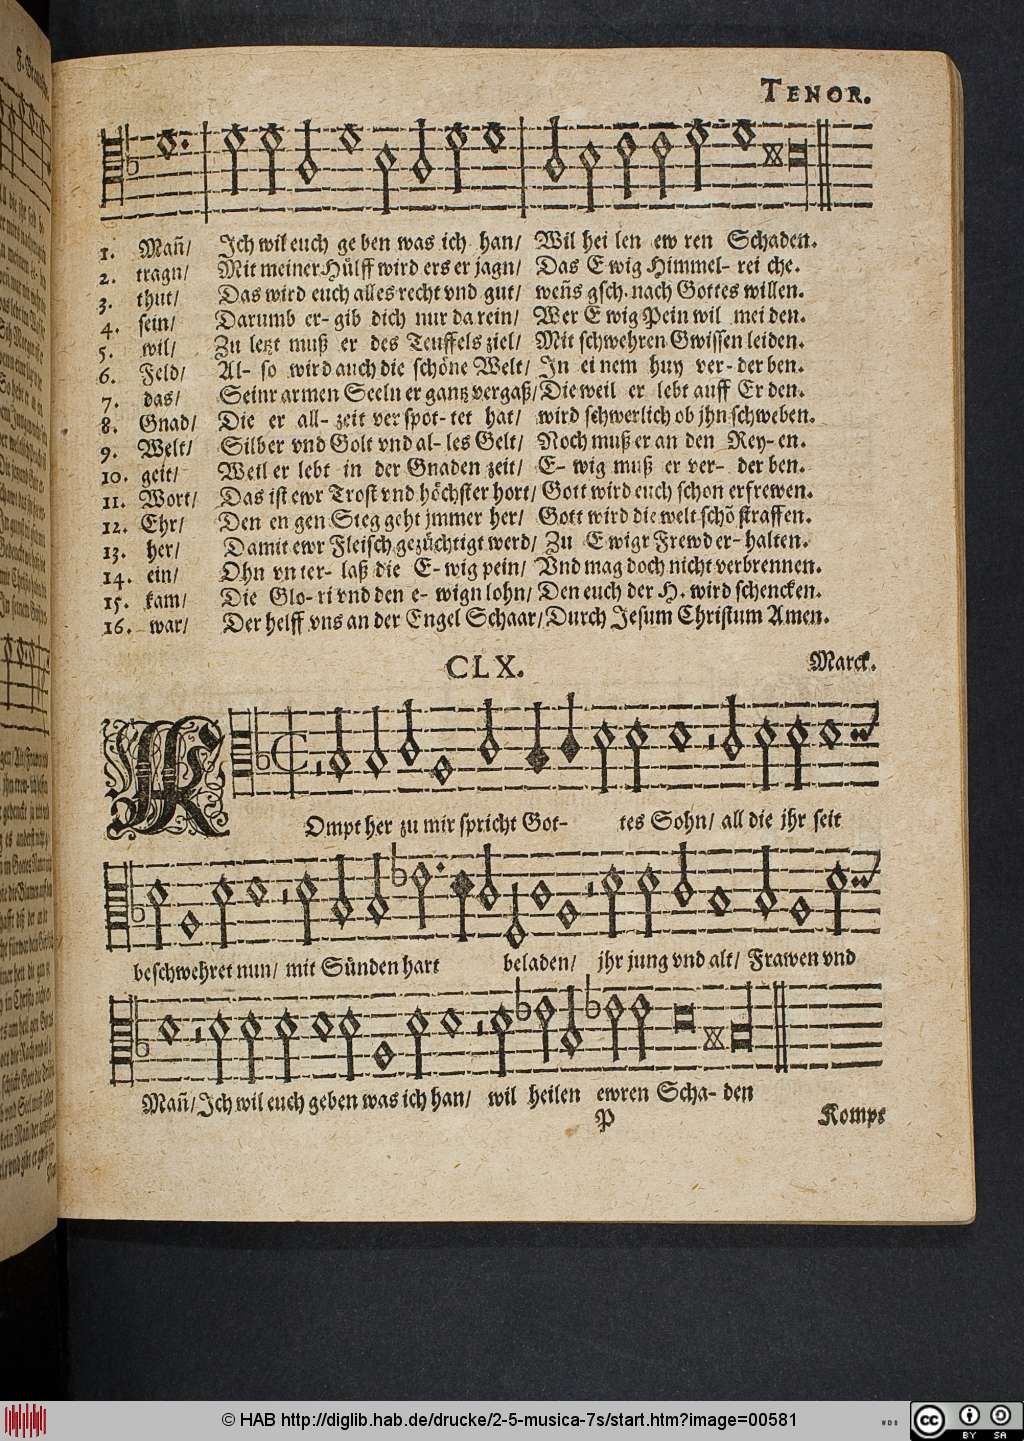 TENOR.
1. Mañ/ Ich wil euch ge ben was ich han/ Wil hei len ew ren Schaden.
2. tragn/ Mit meiner Hülff wird ers er jagn/ Das E wig Himmel- rei che.
3. thut/ Das wird euch alles recht vnd gut/ weñs gsch. nach Gottes willen.
4. sein/ Darumb er- gib dich nur da rein/ Wer E wig Pein wil mei den.
5. wil/ Zu letzt muß er des Teuffels ziel/ Mit schwehren Gwissen leiden.
6. Feld/ Al- so wird auch die schöne Welt/ In ei nem huy ver- der ben.
7. das/ Seinr armen Seeln er gantz vergaß/ Die weil er lebt auff Er den.
8. Gnad/ Die er all- zeit ver spot- tet hat/ wird sehwerlich ob jhn schweben.
9. Welt/ Silber vnd Golt vnd al- les Gelt/ Noch muß er an den Rey- en.
10. geit/ Weil er lebt in der Gnaden zeit/ E- wig muß er ver- der ben.
11. Wort/ Das ist ewr Trost vnd höchster hort/ Gott wird euch schon erfrewen.
12. Ehr/ Den en gen Steg geht jmmer her/ Gott wird die welt schö straffen.
13. her/ Damit ewr Fleisch gezüchtigt werd/ Zu E wigr Frewd er- halten.
14. ein/ Ohn vn ter- laß die E- wig pein/ Vnd mag doch nicht verbrennen.
15. kam/ Die Glo- ri vnd den e- wign lohn/ Den euch der H. wird schencken.
16. war/ Der helff vns an der Engel Schaar/ Durch Jesum Christum Amen.
CLX. Marck.
KOmpt her zu mir spricht Got- tes Sohn/ all die jhr seit
beschwehret nun/ mit Sünden hart beladen/ jhr jung vnd alt/ Frawen vnd
Mañ/ Ich wil euch geben was ich han/ wil heilen ewren Scha- den
P Kompt
© HAB http://diglib.hab.de/drucke/2-5-musica-7s/start.htm?image=00581
WDB
cc BY SA